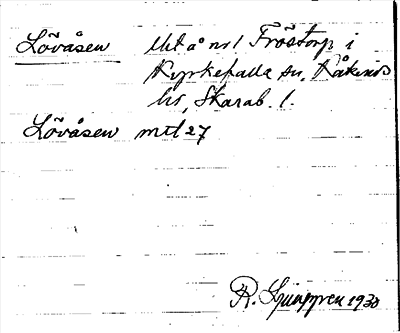 Lövåsen Ut å nr 1 Fröstorp i
Kyrkefalla sn, Kåkinds
hs, Skarab. l.
Lövåsen mtl 27
R. Ljunggren 1930